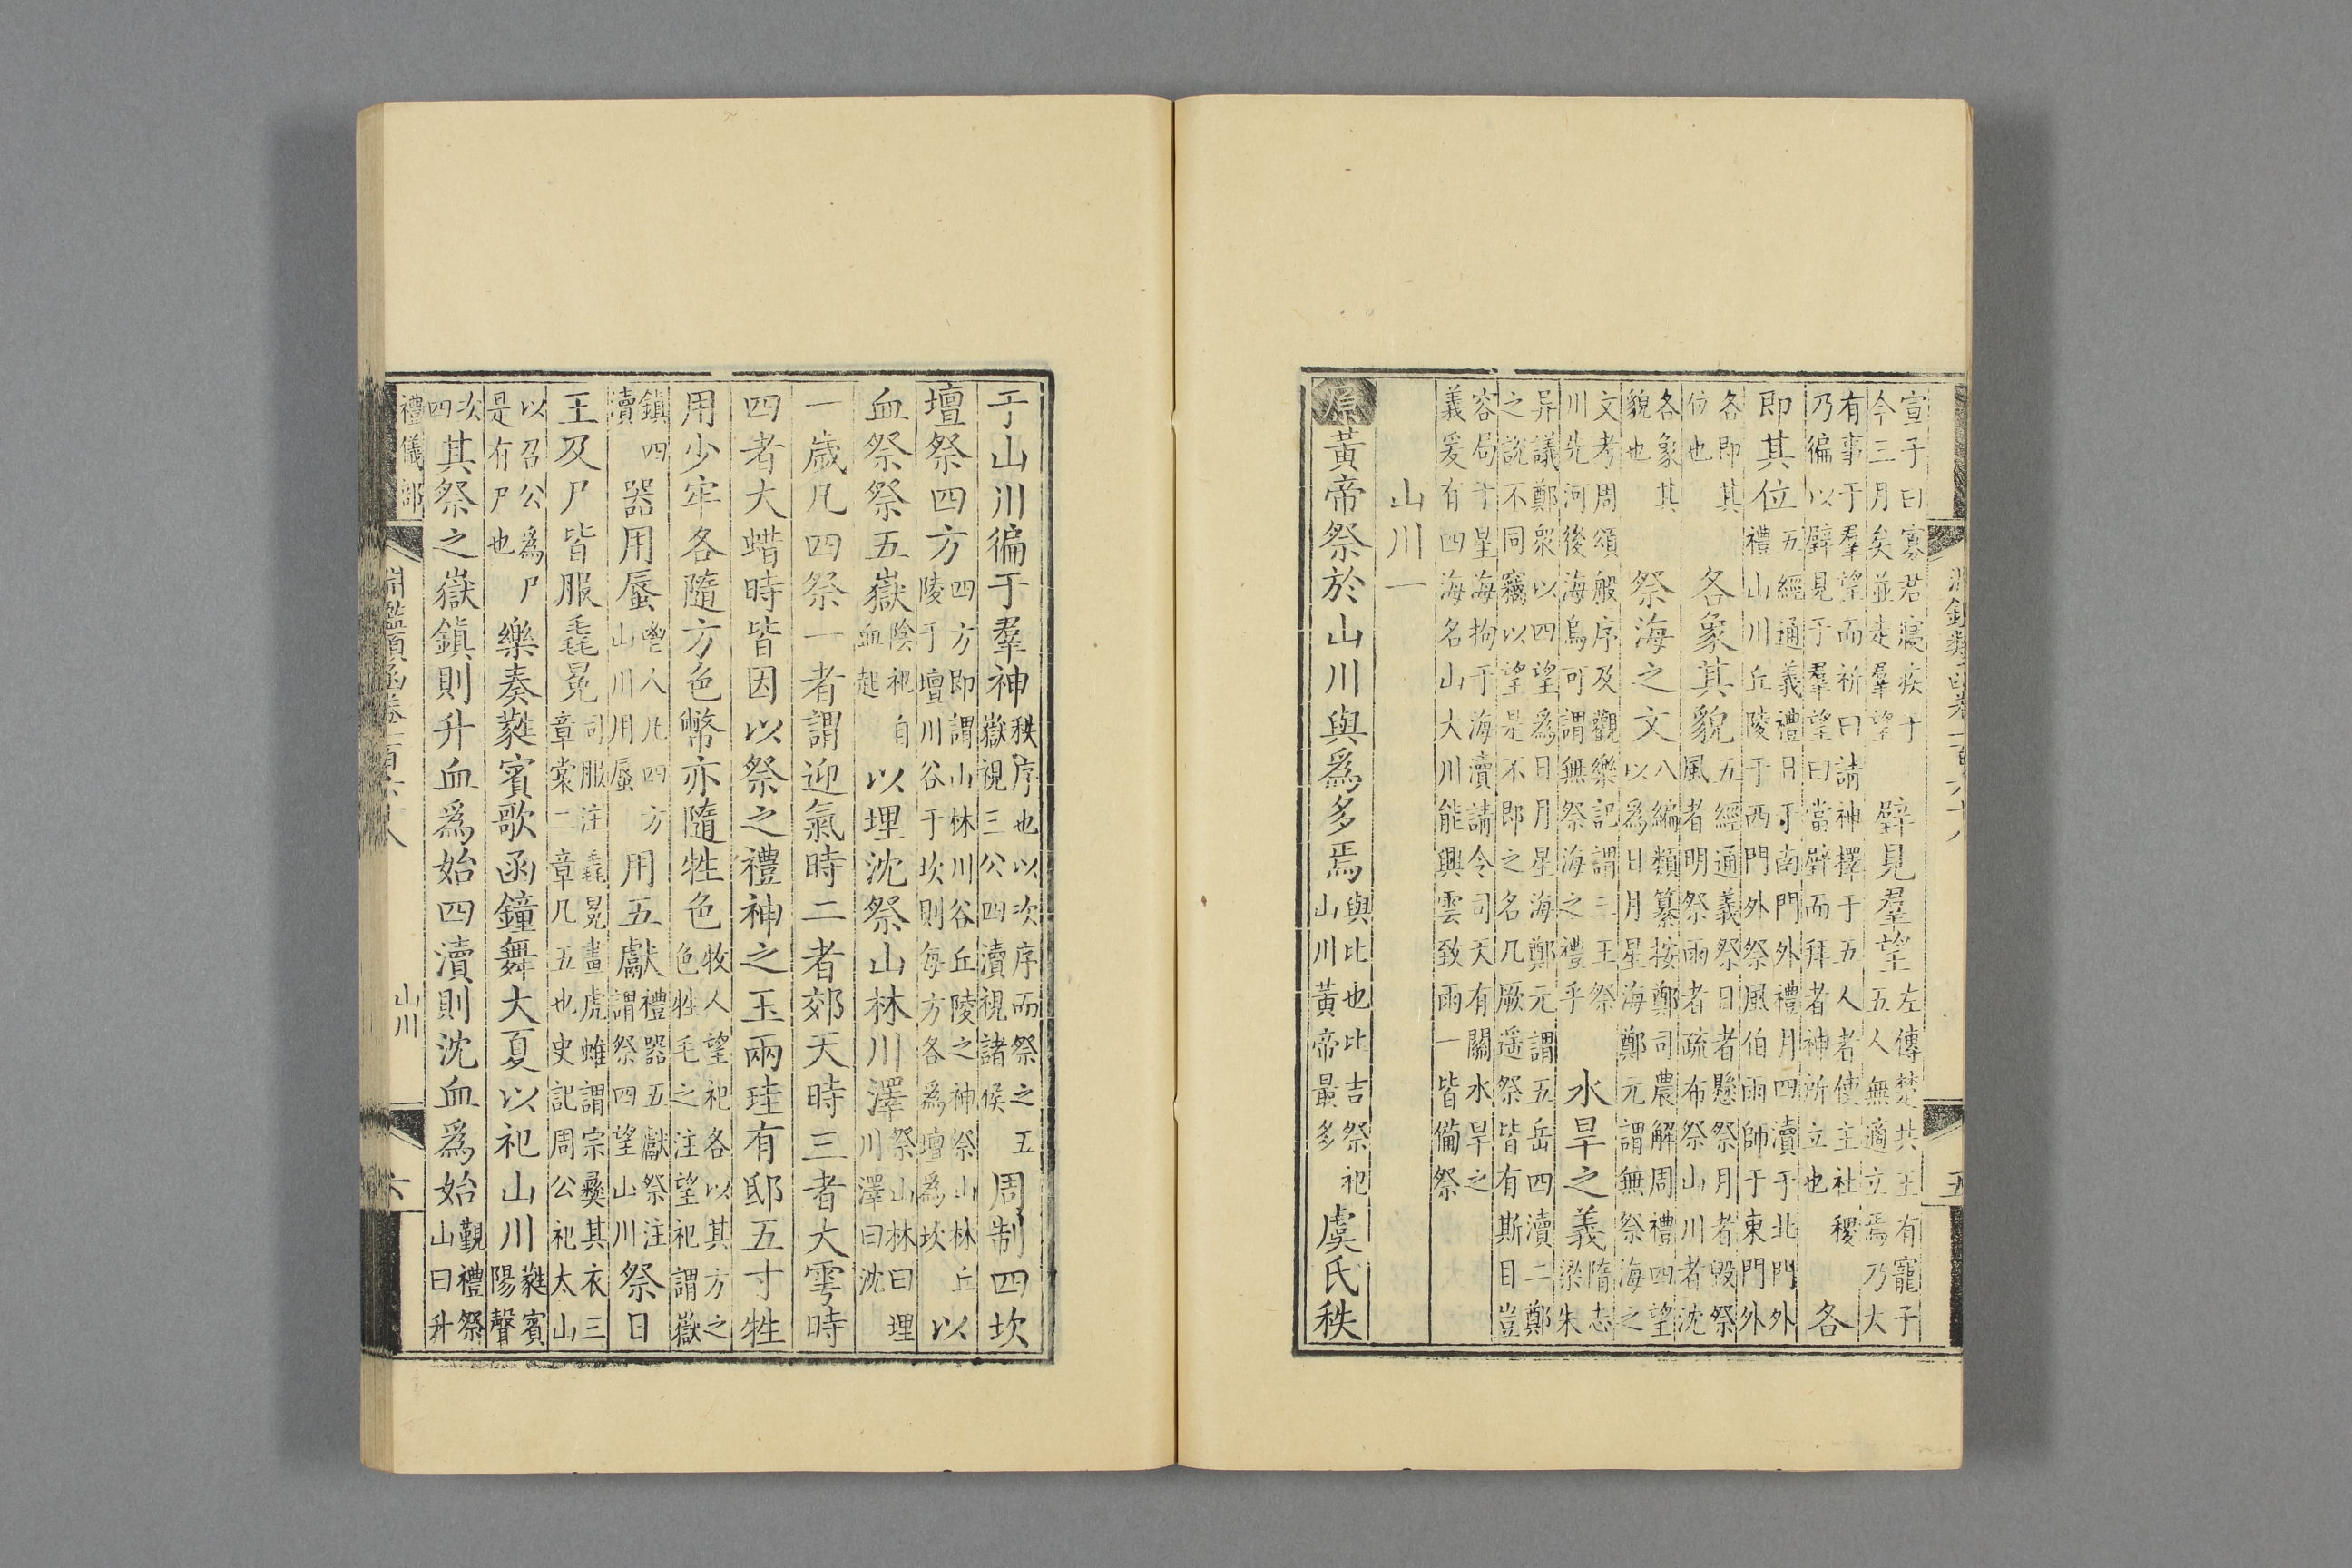 五
宣子曰寡君寢疾于今三月矣並走羣望璧見羣望左傳楚共王有寵子五人無適立焉乃大
有事于羣望而祈曰請神擇于五人者使主社稷乃徧以璧見于羣望曰當璧而拜者神所立也各
即其位五經通義禮日于南門外禮月四瀆于北門外禮山川丘陵于西門外祭風伯雨師于東門外
各即其位也各象其貌五經通義祭日者懸祭月者毀祭風者明祭雨者疏布祭山川者沈
各象其貌也祭海之文八編類纂按鄭司農解周禮四望以為日月星海鄭元謂無祭海之
文考周頌般序及觀樂記謂三王祭川先河後海烏可謂無祭海之禮乎水旱之義隋志梁朱
异議鄭衆以四望為日月星海鄭元謂五岳四瀆二鄭之說不同竊以望是不即之名凡厥遥祭皆有斯目豈
容局于星海拘于海瀆請令司天有關水旱之義爰有四海名山大川能興雲致雨一皆備祭
山川一
原黃帝祭於山川與爲多焉與比也比吉祭祀山川黃帝最多虞氏秩
于山川徧于羣神秩序也以次序而祭之五嶽視三公四瀆視諸侯周制四坎
壇祭四方四方即謂山林川谷丘陵之神祭山林丘陵于壇川谷于坎則每方各爲壇爲坎以
血祭祭五嶽陰祀自血起以埋沈祭山林川澤祭山林曰埋川澤曰沈
一歲凡四祭一者謂迎氣時二者郊天時三者大雩時
四者大蜡時皆因以祭之禮神之玉兩珪有邸五寸牲
用少牢各隨方色幣亦隨牲色牧人望祀各以其方之色牲毛之注望祀謂嶽
鎮四瀆器用蜃鬯人凡四方山川用蜃用五獻禮器五獻祭注謂祭四望山川祭日
王及尸皆服毳冕司服注毳冕畫虎蜼謂宗彝其衣三章棠二章凡五也史記周公祀太山
以召公爲尸是有尸也樂奏蕤賓歌函鐘舞大夏以祀山川蕤賓陽聲
次四其祭之嶽鎮則升血爲始四瀆則沈血爲始覲禮祭山曰升
禮儀部 淵鑑類函卷一百六十八 山川 六